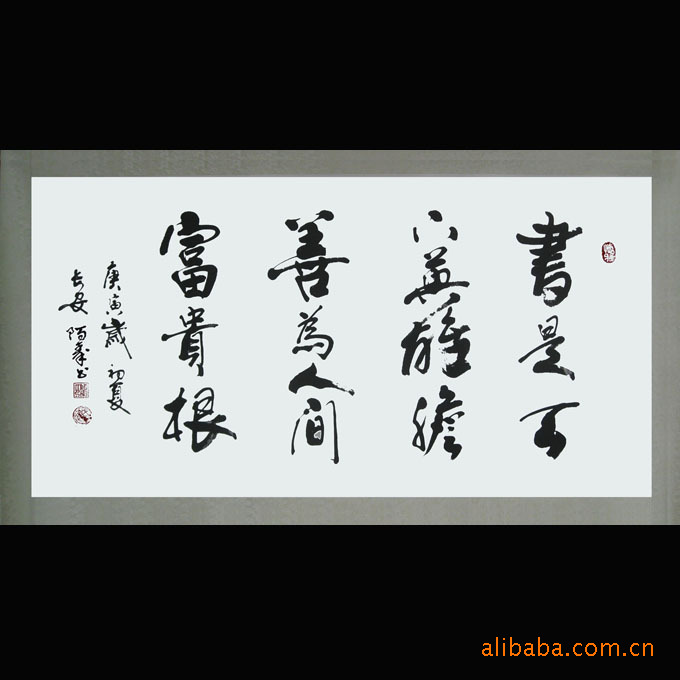 書是天
下英雄膽
善為人間
富貴根
庚寅歲初夏
長安陌峯書
alibaba.com.cn